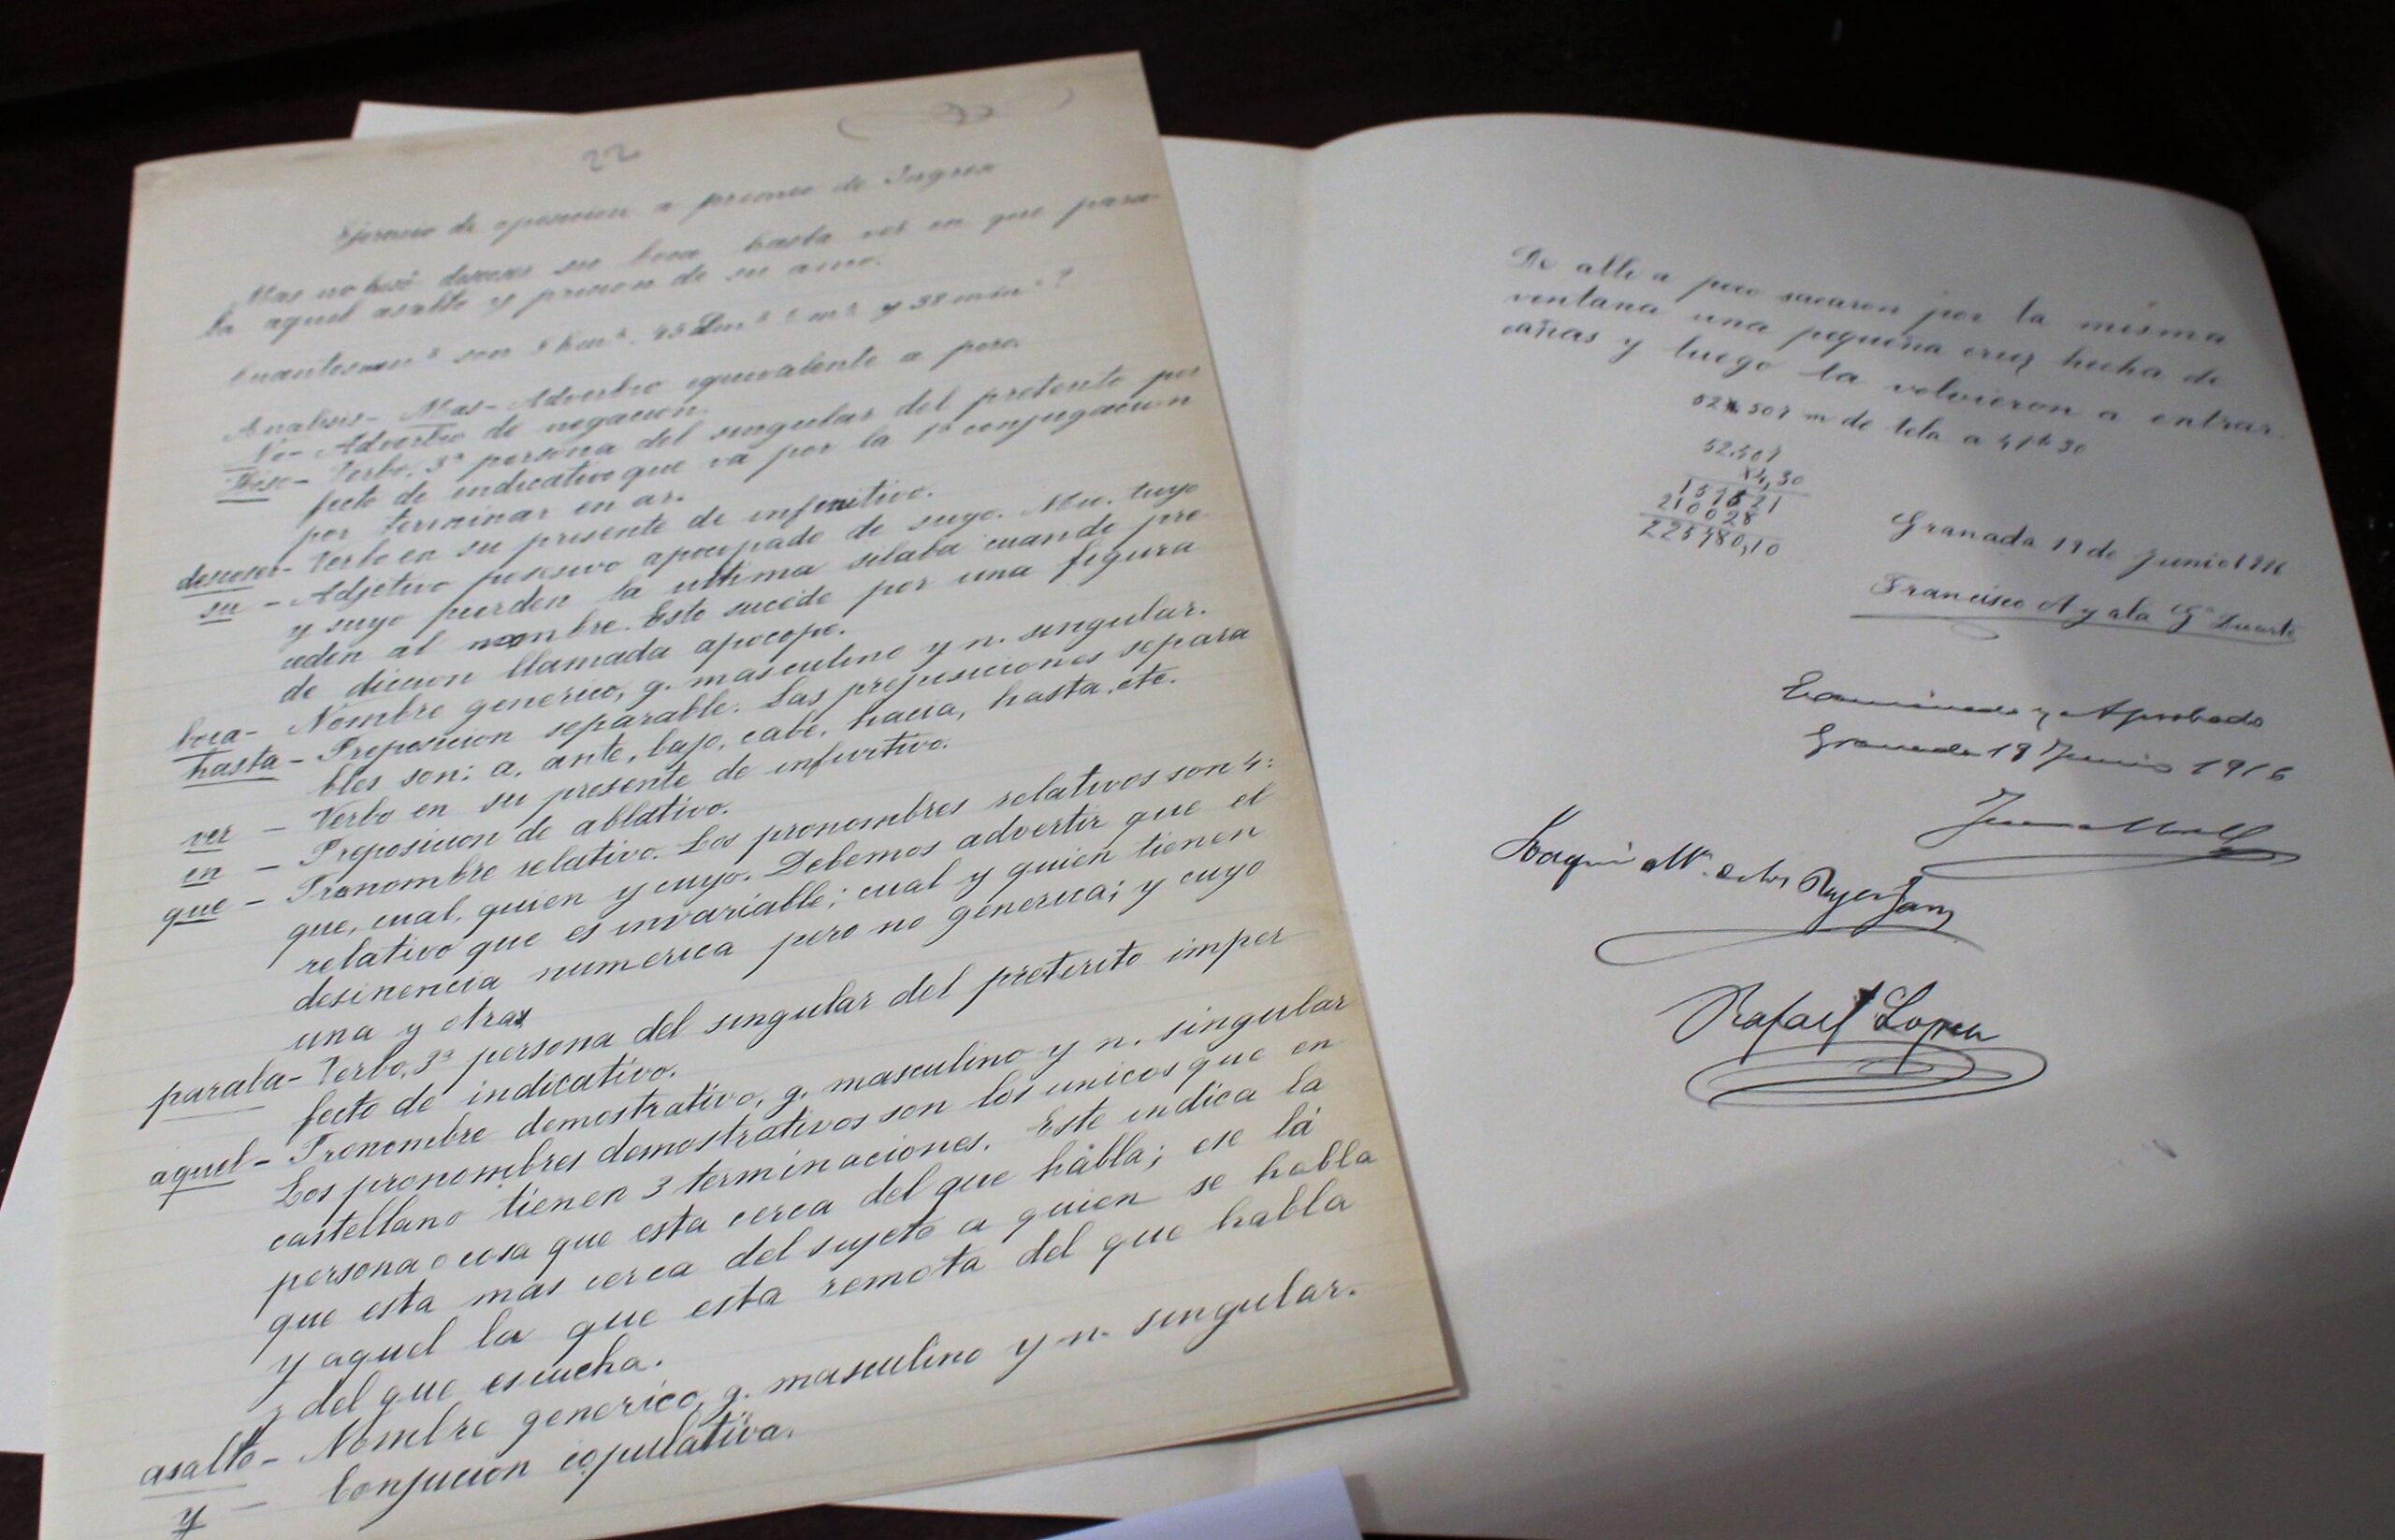 22
Ejercicio de oposicion a premio de Ingreso
Mas no osó descoser su boca hasta ver en que para
ba aquel asalto y prision de su amo.
Cuantos mm² son 5 hm². 45 Dm² 2 m² y 38 mm²?
Analisis- Mas- Adverbio equivalente a pero.
No- Adverbio de negacion.
Verbo. 3ª persona del singular del pretento per
fecto de indicativo que va por la 1ª conjugacion
por terminar en ar.
descoser- Verbo en su presente de infinitivo.
su - Adjetivo posesivo apocopado de suyo. Mio. tuyo
y suyo pierden la ultima silaba cuando pre
ceden al nombre. Esto sucede por una figura
de diccion llamada apocope.
boca- Nombre generico, g. masculino y n. singular.
hasta- Preposicion separable. Las preposiciones separa
bles son: a, ante, bajo, cabe, hacia, hasta, etc.
ver - Verbo en su presente de infinitivo.
en - Preposicion de ablativo.
que - Pronombre relativo. Los pronombres relativos son 4:
que, cual, quien y cuyo. Debemos advertir que el
relativo que es invariable; cual y quien tienen
desinencia numerica pero no generica; y cuyo
una y otra
paraba- Verbo, 3ª persona del singular del preterito imper
fecto de indicativo.
aquel- Pronombre demostrativo, g. masculino y n. singular
Los pronombres demostrativos son los unicos que en
castellano tienen 3 terminaciones. Este indica la
persona o cosa que esta cerca del que habla; ese la
que esta mas cerca del sujeto a quien se habla
y aquel la que esta remota del que habla
y del que escucha.
asalto- Nombre generico, g. masculino y n. singular.
y - Conjucion copulativa.
De alli a poco sacaron por la misma
ventana una pequeña cruz hecha de
cañas y luego la volvieron a entrar.
52.507 m de tela a 4 30
52.507
x4,30
157521
210028
225780,10
Granada 19 de Junio 1916
Francisco Ayala Gª Duarte
Examinado y Aprobado
Granada 19 Junio 1916
Joaquin Mª de los Reyes
Rafael Lopez